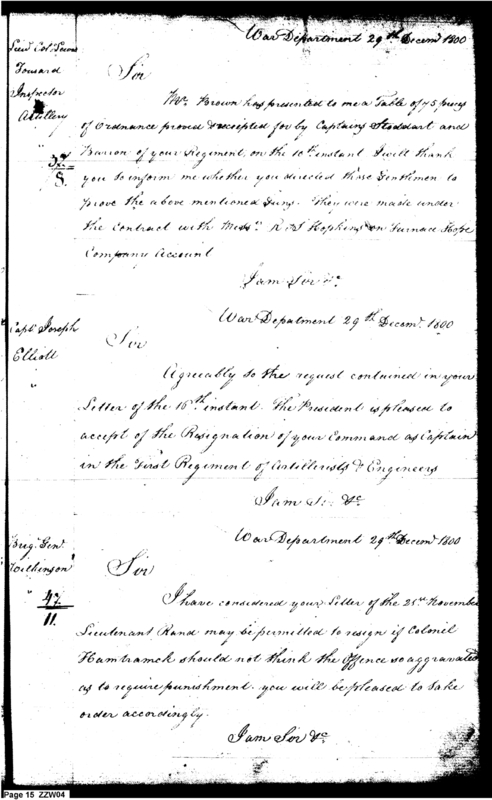 War Department 29th Decemr 1800
Lieut Col:
Tousard
Inspector
Artillery
"
32d
8.
Sir
Mr. Brown has presented to me a Table of 75 pieces
of Ordnance proved & receipted for by Captains Stoddart and
of your Regiment, on the 10th instant I will thank
you to inform me whether you directed those Gentlemen to
prove the above mentioned Guns. They were made under
the Contract with Messrs. R & S Hopkins on Furnace Hope
Company Account
I am Sir &c.
War Department 29th Decemr. 1800
Capt. Joseph
Elliott
"
Sir
Agreeably to the request contained in your
Letter of the 16th instant. The President is pleased to
accept of the Resignation of your Command as Captain
in the First Regiment of Artillerists & Engineers
I am Sir &c.
War Department 29th Decemr 1800
Brig. Genl.
Wilkinson
"
47
11.
Sir
I have considered your Letter of the 21st November
Lieutenant Rand may be permitted to resign if Colonel
Hamtramck should not think the Offence so aggravated
as to require punishment. you will be pleased to take
order accordingly.
I am Sir &c.
Page 15 ZZW04